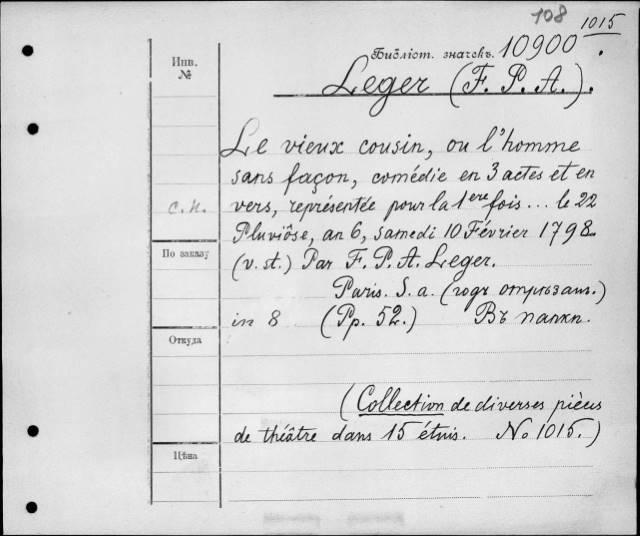 108 1015
Инв.
№
Библіот. значекъ. 10900.
Leger (F. P. A.).
Le vieux cousin, ou l'homme
sans façon, comédie en 3 actes et en
с.н. vers, représentée pour la 1ere fois... le 22
Pluviôse, an 6, samedi 10 Février 1798.
По заказу
(v. st.) Par F. P. A. Leger.
Paris. S. a. (годъ отрѣзан.)
in 8 (Pp. 52.) Въ папкп.
Откуда
(Collection de diverses pièces
de théâtre dans 15 étuis. No 1015.)
Цѣна